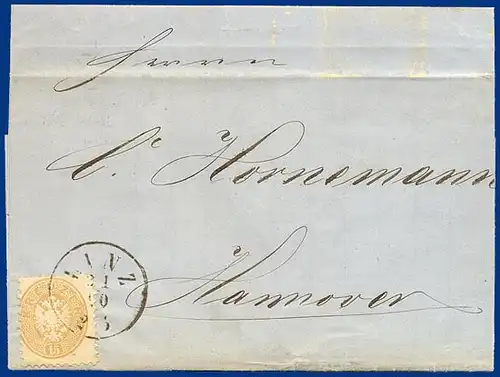 Herrn
C. Hornemann
Hannover
LINZ
15